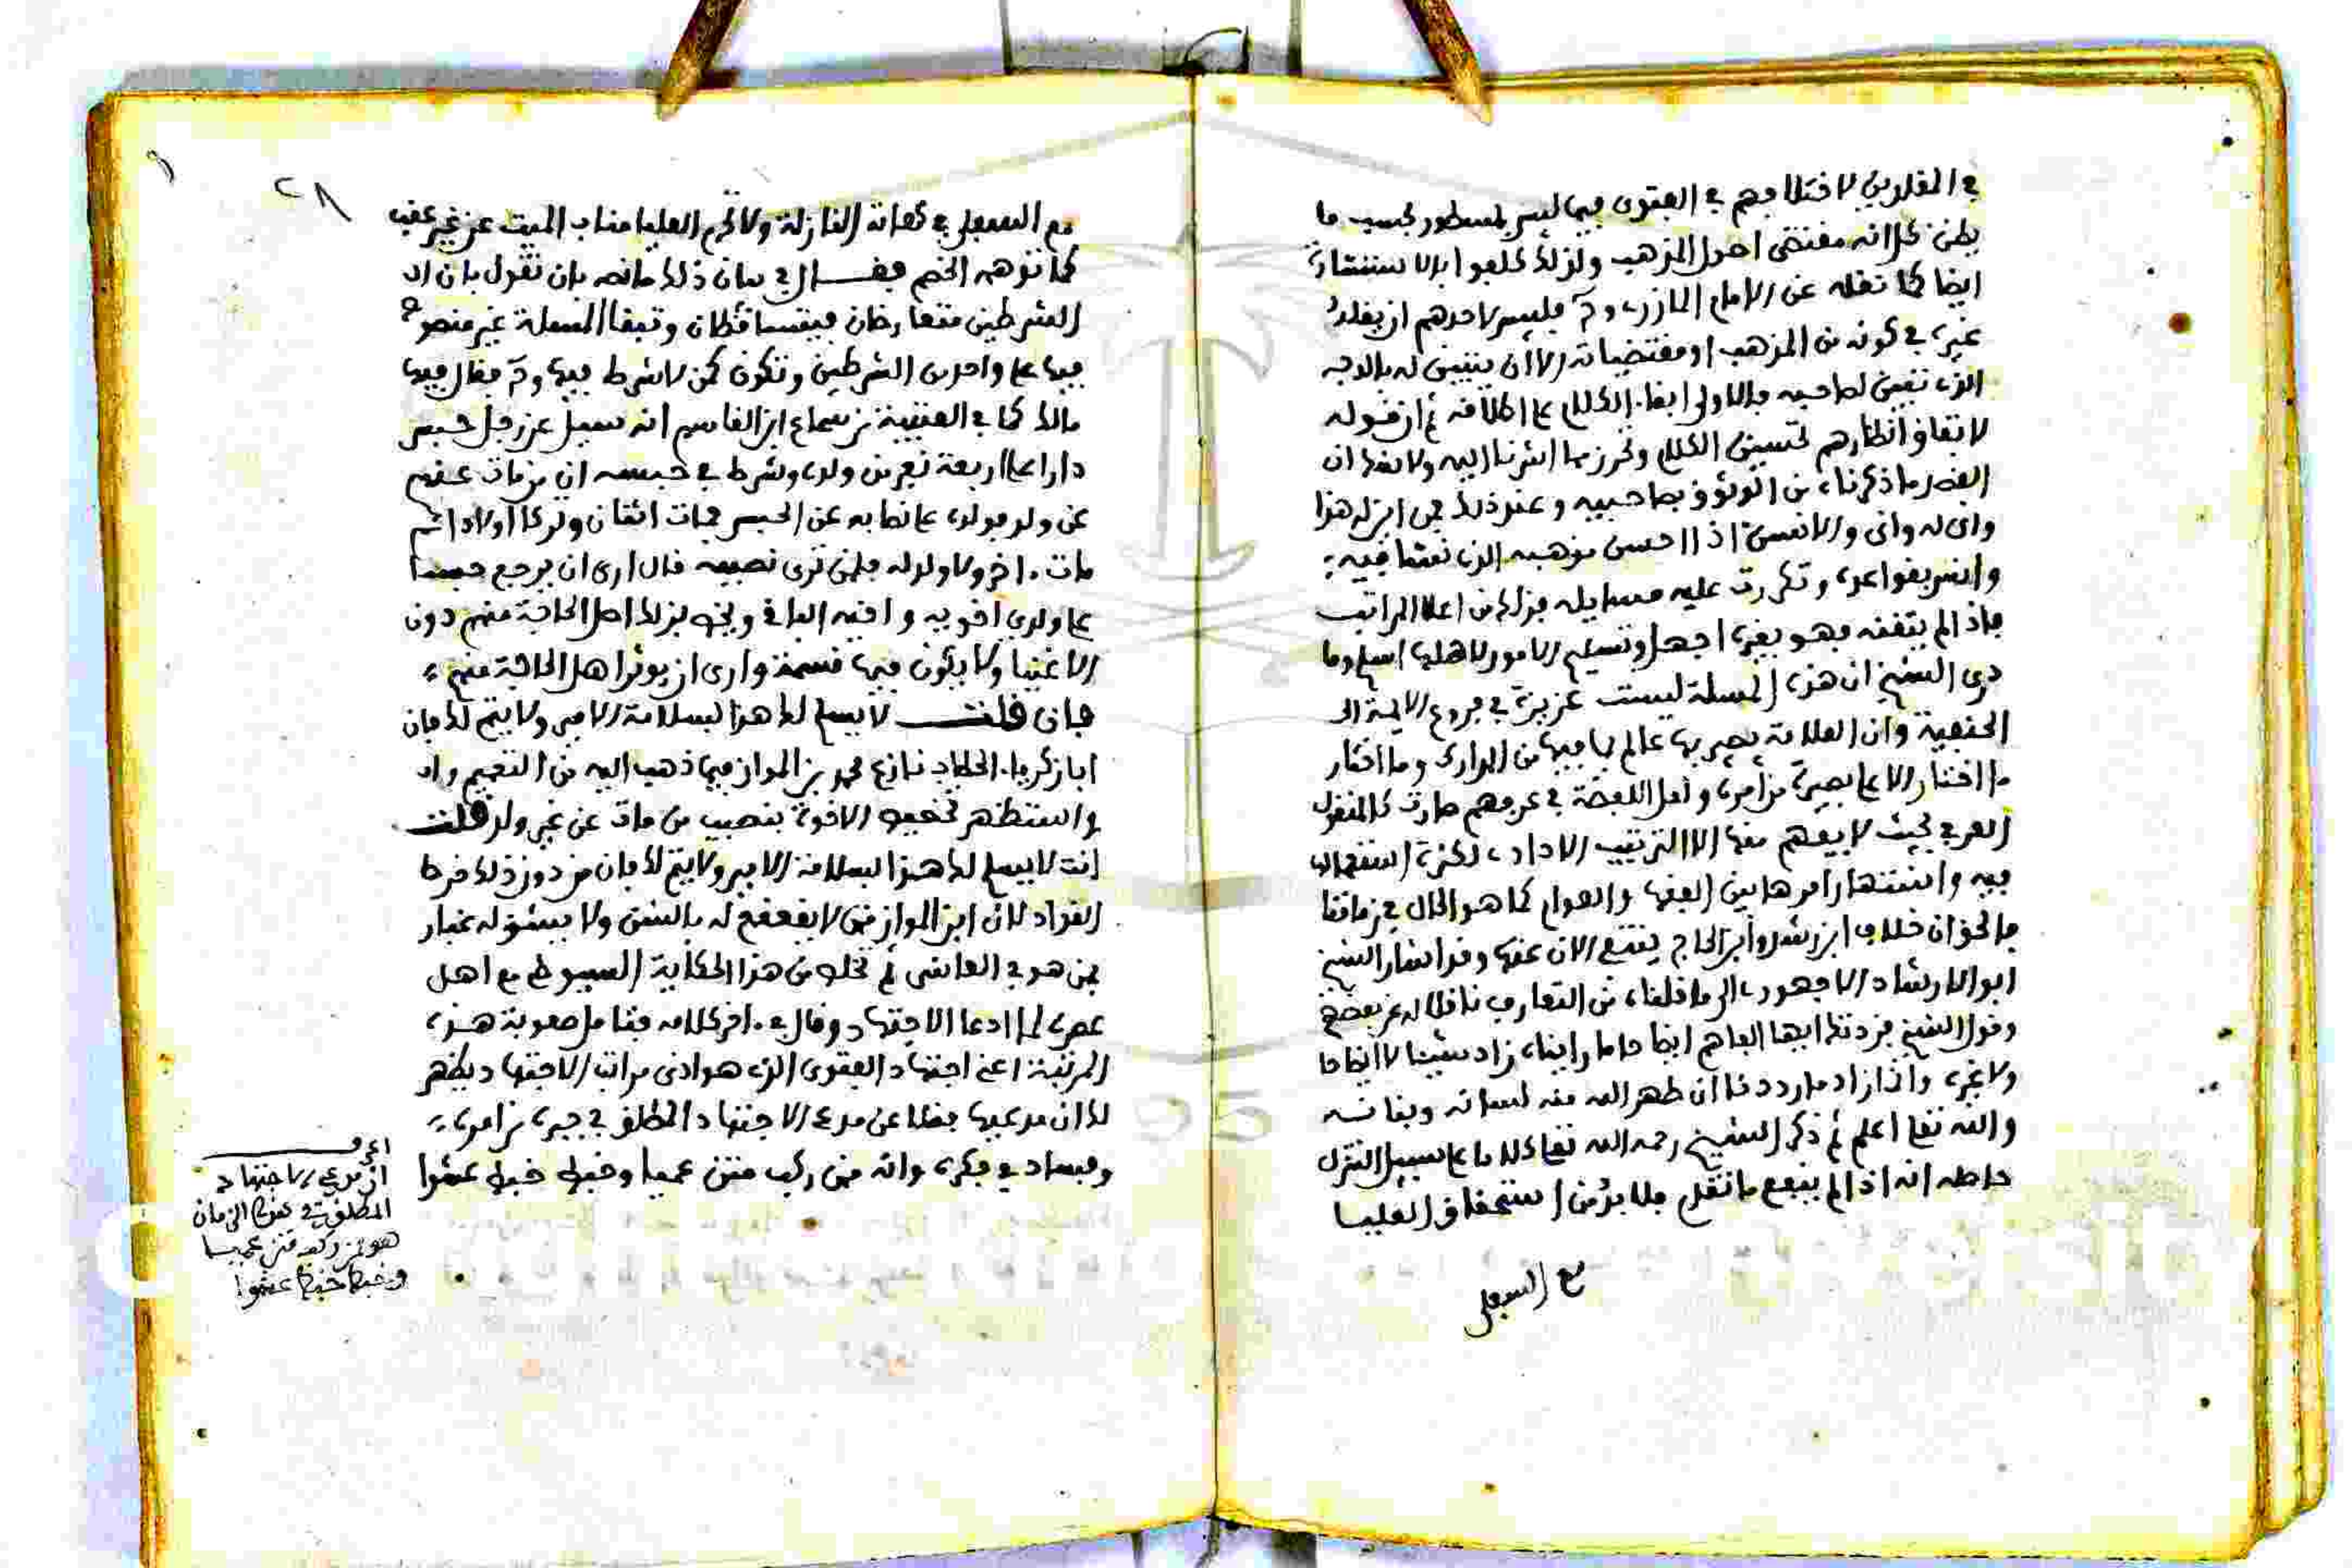 في المقلدين لاختلافهم في الفتوى فيما ليس بمسطور بحسب ما
يظن كل انه مقتضى اصول المذهب ولذلك
ايضا كما نقله عن الامام المازري وح فليس لاحدهم ان يقلد
غيره في كونه من المذهب او مقتضياته الا ان يتبين له بالوجه
الذي تبين لصاحبه الكلام على اطلاقه ثم ان قوله
لاتفاق انظارهم تحسين الكلام اشرنا اليه
القصد ما ذكرناه من الوثوق بصاحبيه وعند ذلك
وانى له وانى والانسان اذا احسن مذهبه الذي نشا فيه
وانس بقواعده وتكررت عليه مسايله فذلك من اعلا المراتب
فاذا لم يتقنه فهو بغيره اجهل وتسليم الامور لاهلها اسلم وما
درى الشيخ ان هذه المسلة ليست عزيزة في فروع الايمة
الحنفية وان العلامة بصير بها عالم بما فيها من المدارك وما اختار
ما اختار الا على بصيرة من امره في عرفهم صارت كالمنقول
العرفي بحيث لا يفهم منها الا الترتيب الادادي لكثرة استعمالها
فيه واشتهار امرها بين الفقها والعوام كما هو الحال في زماننا
فالحق ان خلاف ابن رشد وابن الحاج الان عنها وقد اشار الشيخ
ابو الارشاد الاجهوري الى ما قلناه من التعارف ناقلا له عن بعضهم
وقول الشيخ فزدتك ايها الفاهم ايضاحا ما رايناه زاد شيئا لا ايضاحا
ولا غيره واذا زاد ان طهر الله منه لسانه وبنانه
والله تعالى اعلم ثم ذكر الشيخ رحمه الله تعالى كلاما على سبيل التنزل
حاصله انه اذا لم ينفع ما تقدم فلا بد من استحقاق العليا
مع السفلى
٢٨
مع السفلى في هاته النازلة ولا تحرم العليا مناب الميت عن غير عقب
كما توهمه الخصم فقال في بيان ذلك ما نصه بان نقول بان
الشرطين متعارضان فيتساقطان وتبقا المسلة غير منصوص
فيها على واحد من الشرطين وتكون كمن لا شرط فيها وح يقال فيها
مالك كما في العتبية من سماع ابن القاسم انه سيل عن رجل حبس
دارا على اربعة نفر من ولده وشرط في حبسه ان من مات منهم
عن ولد فولده على نصابه من الحبس فمات اثنان وتركا اولادا ثم
مات اخر ولا ولد له فلمن ترى نصيبه قال ارى ان يرجع حبسا
على ولدي اخويه واخيه الباقي ويخص بذلك اهل الحاجة منهم دون
الاغنيا ولا يكون فيها قسمة وارى ان يوثر اهل الحاجة منهم
فان قلت لا يسلم لك هذا بسلامة الامير ولا يتم لك فان
ابا زكريا الحطاب نازع محمد بن المواز فيما ذهب اليه من التعميم
واستظهر تخصيص الاخوة بنصيب من مات عن غير ولد قلت
انت لا يسلم لك هذا بسلامة الامير ولا يتم لك فان من دون ذلك خرط
القتاد لان ابن المواز ممن لا يقعقع له بالشن ولا يشق له غبار
فمن هو في العاشي ثم تخلص من هذا الحكاية السيوطي مع اهل
عصره لما ادعا الاجتهاد وقال في اخر كلامه فتامل صعوبة هذه
المرتبة اعني اجتهاد الفتوى الذي هو ادنى مراتب الاجتهاد ويظهر
لك ان مدعيها فضلا عن مدعي الاجتهاد المطلق في حيرة من امره
وفساد في فكره وانه ممن ركب متن عميا وخبط خبط عشوا
اعرف
ان مدعي الاجتهاد
المطلق في هذا الزمان
هو من ركب متن عميا
وخبط خبط عشوا